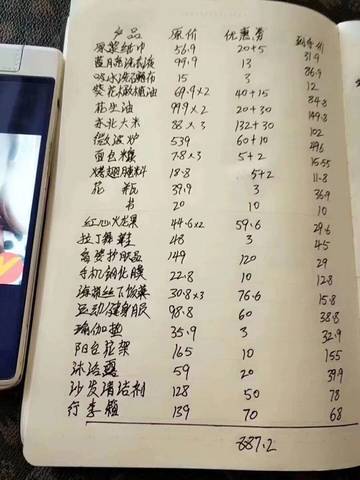 产品 原价 优惠券 到手价
原浆纸巾 56.9 20+5 31.9
蓝月亮洗衣液 99.9 13 86.9
吸水洗碗布 15 3 12
葵花橄榄油 69.9×2 40+15 84.8
花生油 99.9×2 20+30 149.8
东北大米 88×3 132+30 102
微波炉 539 60+10
面包糠 7.8×3 5+2 15.55
烤翅腌料 18.8 5+2 11.8
花瓶 39.9 3 36.9
书 20 10 10
红心火龙果 44.6×2 59.6 29.6
拉丁舞鞋 48 3 45
护肤品 149 120 29
手机钢化膜 22.8 10 12.8
海带丝下饭菜 30.8×3 76.6 15.8
运动健身服 98.8 60 38.8
瑜伽垫 35.9 3 32.9
阳台花架 165 10 155
沐浴露 59 20 39.9
沙发清洁剂 128 50 78
行李箱 139 70 68
887.2